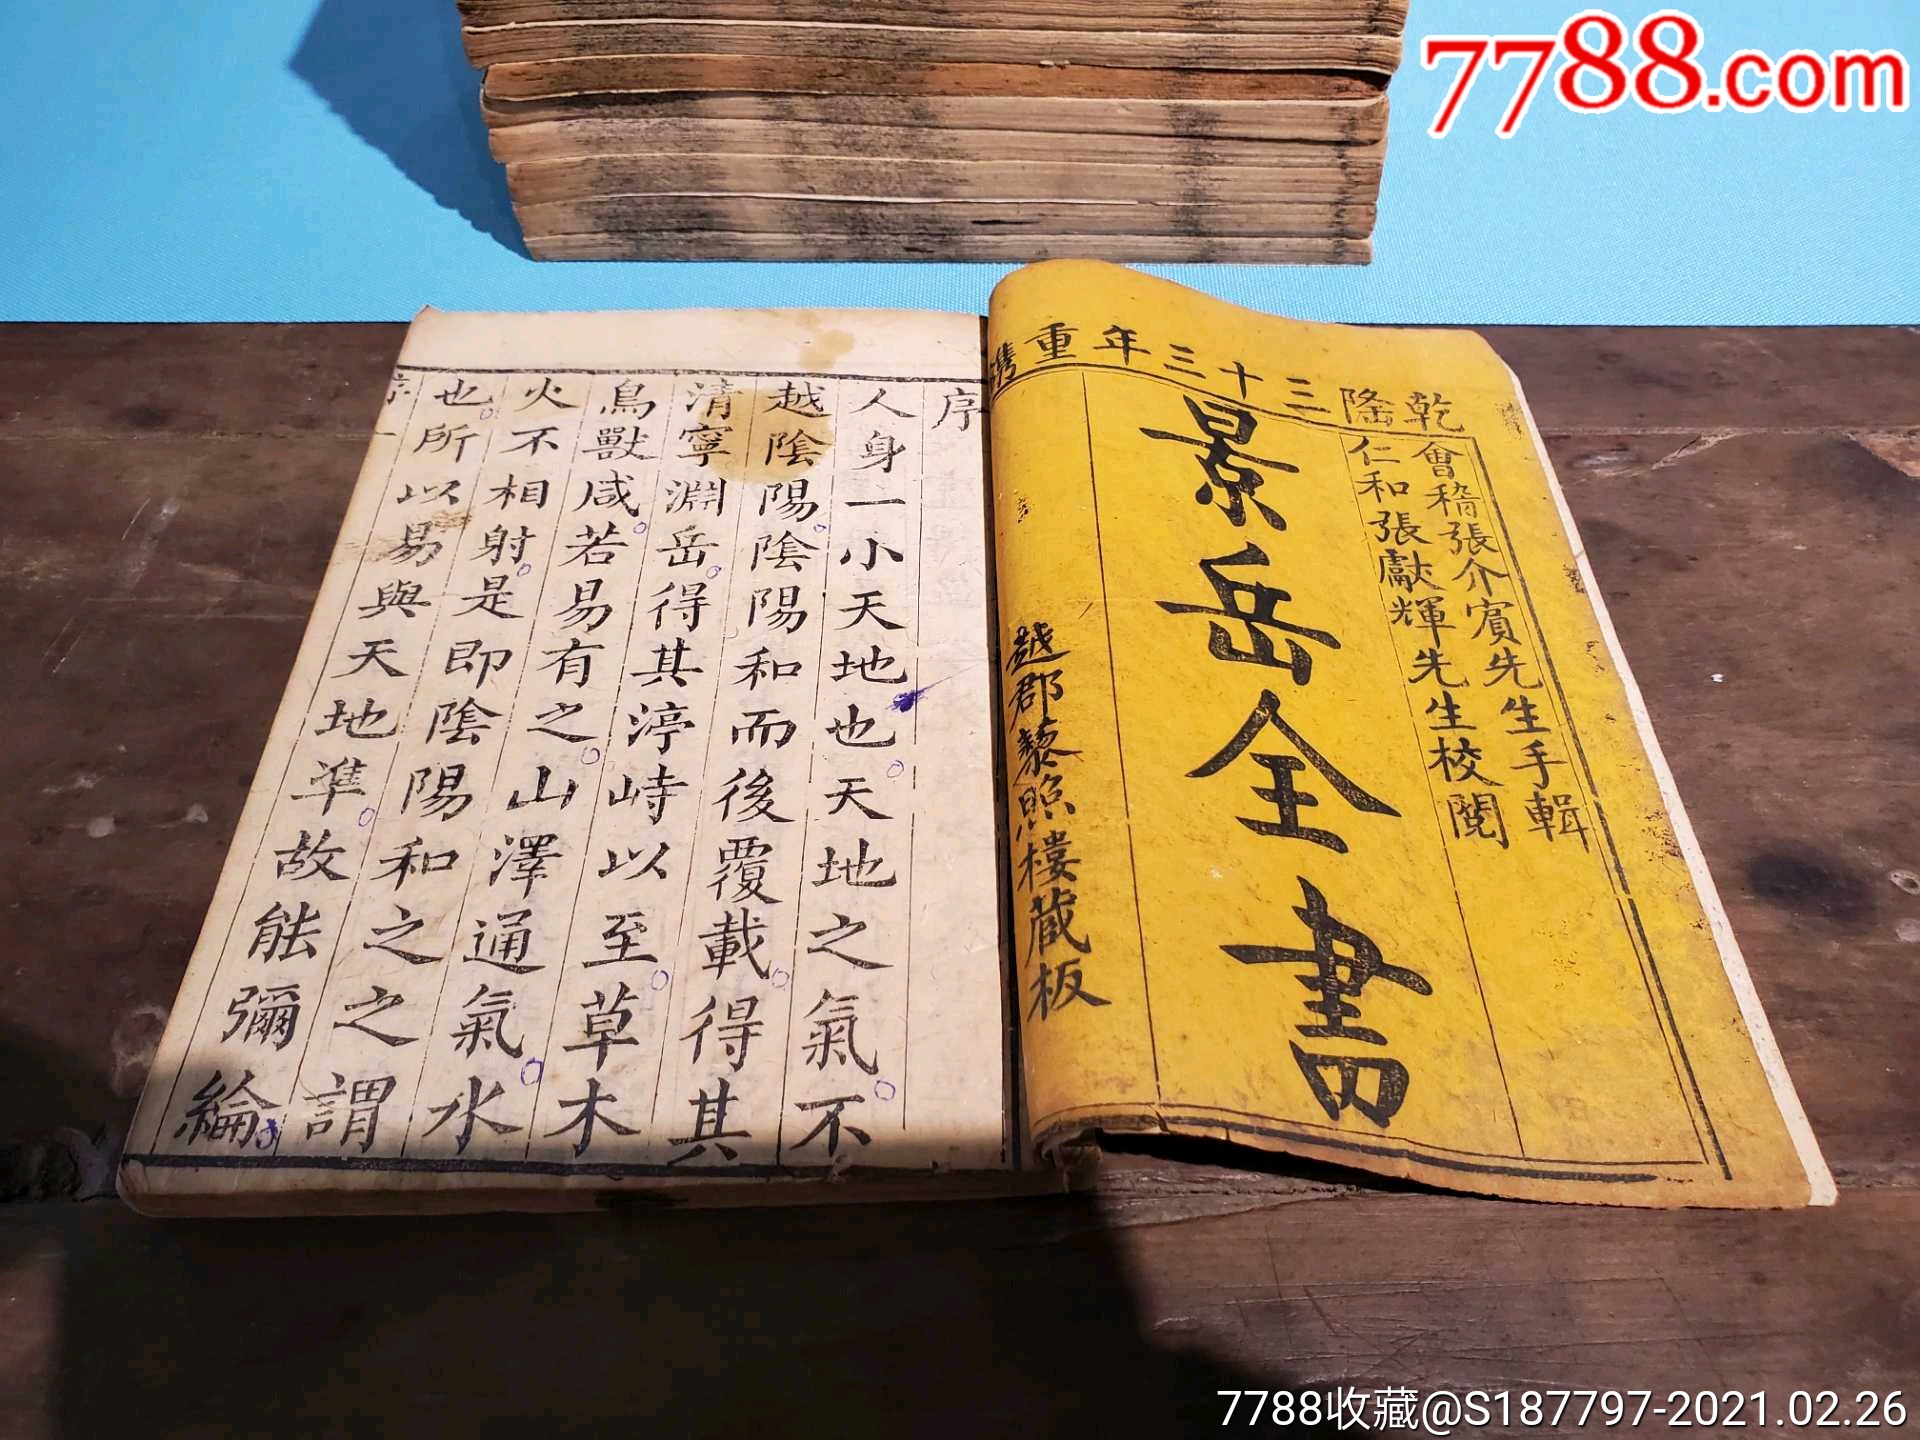 7788.com
乾隆三十三年重鐫
會稽張介賓先生手輯
仁和張獻輝先生校閱
景岳全書
越郡藜照樓藏板
序
人身一小天地也天地之氣不
越陰陽陰陽和而後覆載得其
清寧淵岳得其渟峙以至草木
鳥獸咸若易有之山澤通氣水
火不相射是即陰陽和之之謂
也所以易與天地準故能彌綸
序 一
7788收藏@S187797-2021.02.26